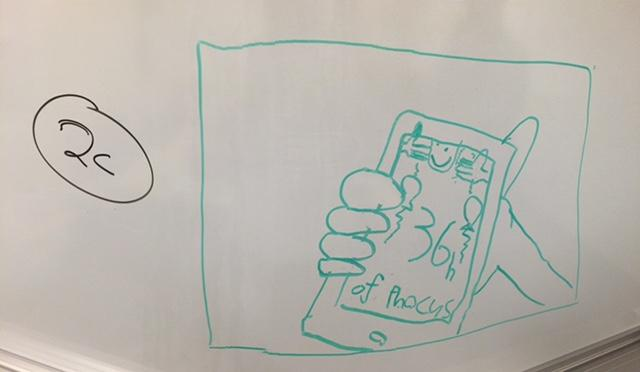 2c
36h
of Phocus